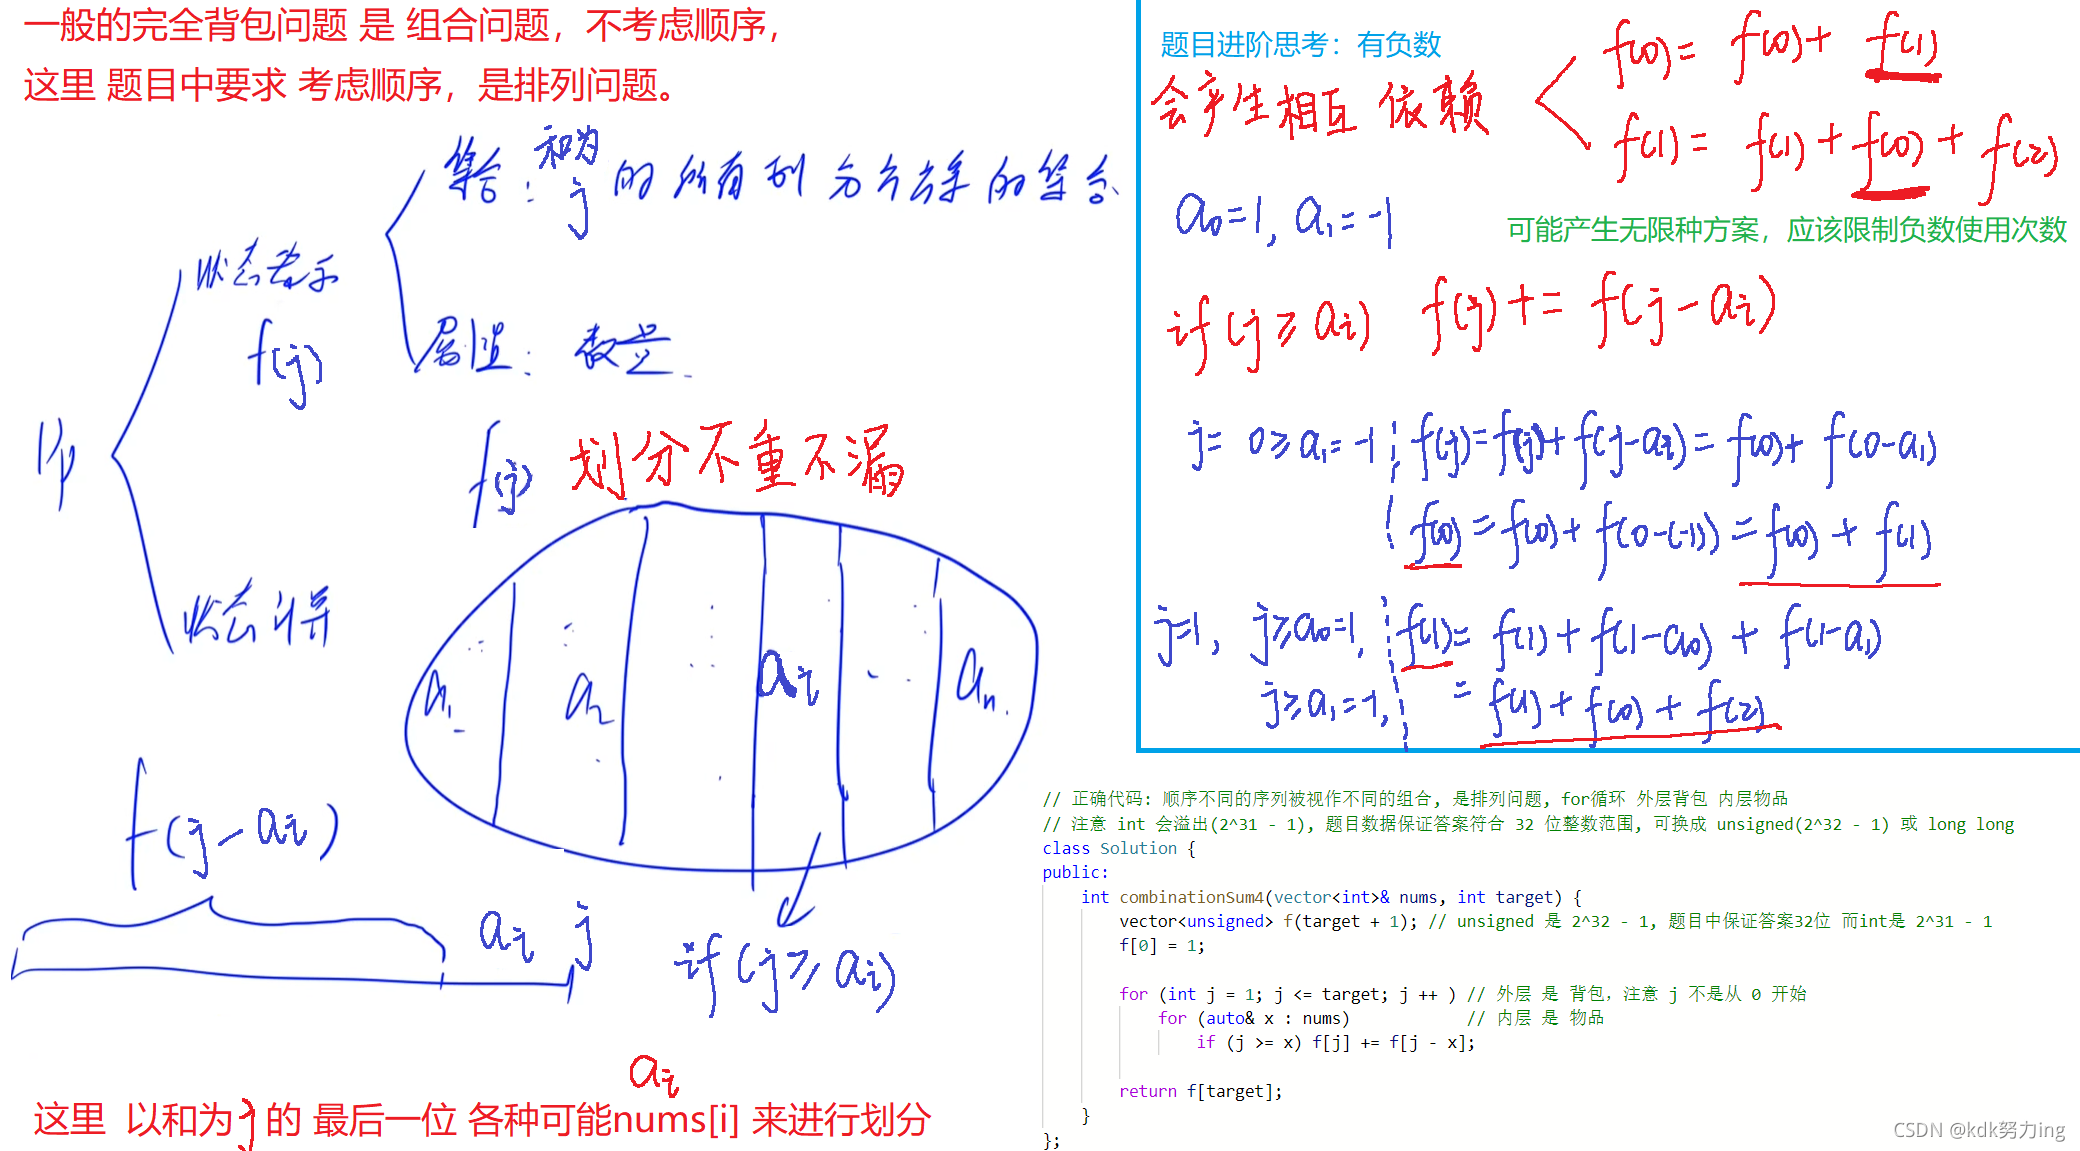 一般的完全背包问题 是 组合问题，不考虑顺序，
这里 题目中要求 考虑顺序，是排列问题。
集合：和为 j 的所有到方案的集合
状态表示
f(j)
属性：数量.
Dp
f(j) 划分不重不漏
状态计算
a₁ a₂ aᵢ aₙ
f(j-aᵢ)
aᵢ j
if(j≥aᵢ)
aᵢ
这里 以和为 j 的 最后一位 各种可能nums[i] 来进行划分
题目进阶思考：有负数
会产生相互依赖
f(0)= f(0)+ f(1)
f(1)= f(1)+f(0)+ f(2)
a₀=1, a₁=-1
可能产生无限种方案，应该限制负数使用次数
if(j≥aᵢ) f(j)+= f(j-aᵢ)
j= 0≥a₁=-1 f(j)=f(j)+f(j-aᵢ)=f(0)+ f(0-a₁)
f(0)=f(0)+f(0-(-1))=f(0)+f(1)
j=1, j≥a₀=1, f(1)= f(1)+f(1-a₀)+ f(1-a₁)
j≥a₁=-1, = f(1)+f(0)+f(2)
// 正确代码: 顺序不同的序列被视作不同的组合, 是排列问题, for循环 外层背包 内层物品
// 注意 int 会溢出(2^31 - 1), 题目数据保证答案符合 32 位整数范围, 可换成 unsigned(2^32 - 1) 或 long long
class Solution {
public:
int combinationSum4(vector<int>& nums, int target) {
vector<unsigned> f(target + 1); // unsigned 是 2^32 - 1, 题目中保证答案32位 而int是 2^31 - 1
f[0] = 1;
for (int j = 1; j <= target; j ++ ) // 外层 是 背包，注意 j 不是从 0 开始
for (auto& x : nums) // 内层 是 物品
if (j >= x) f[j] += f[j - x];
return f[target];
}
};
CSDN @kdk努力ing